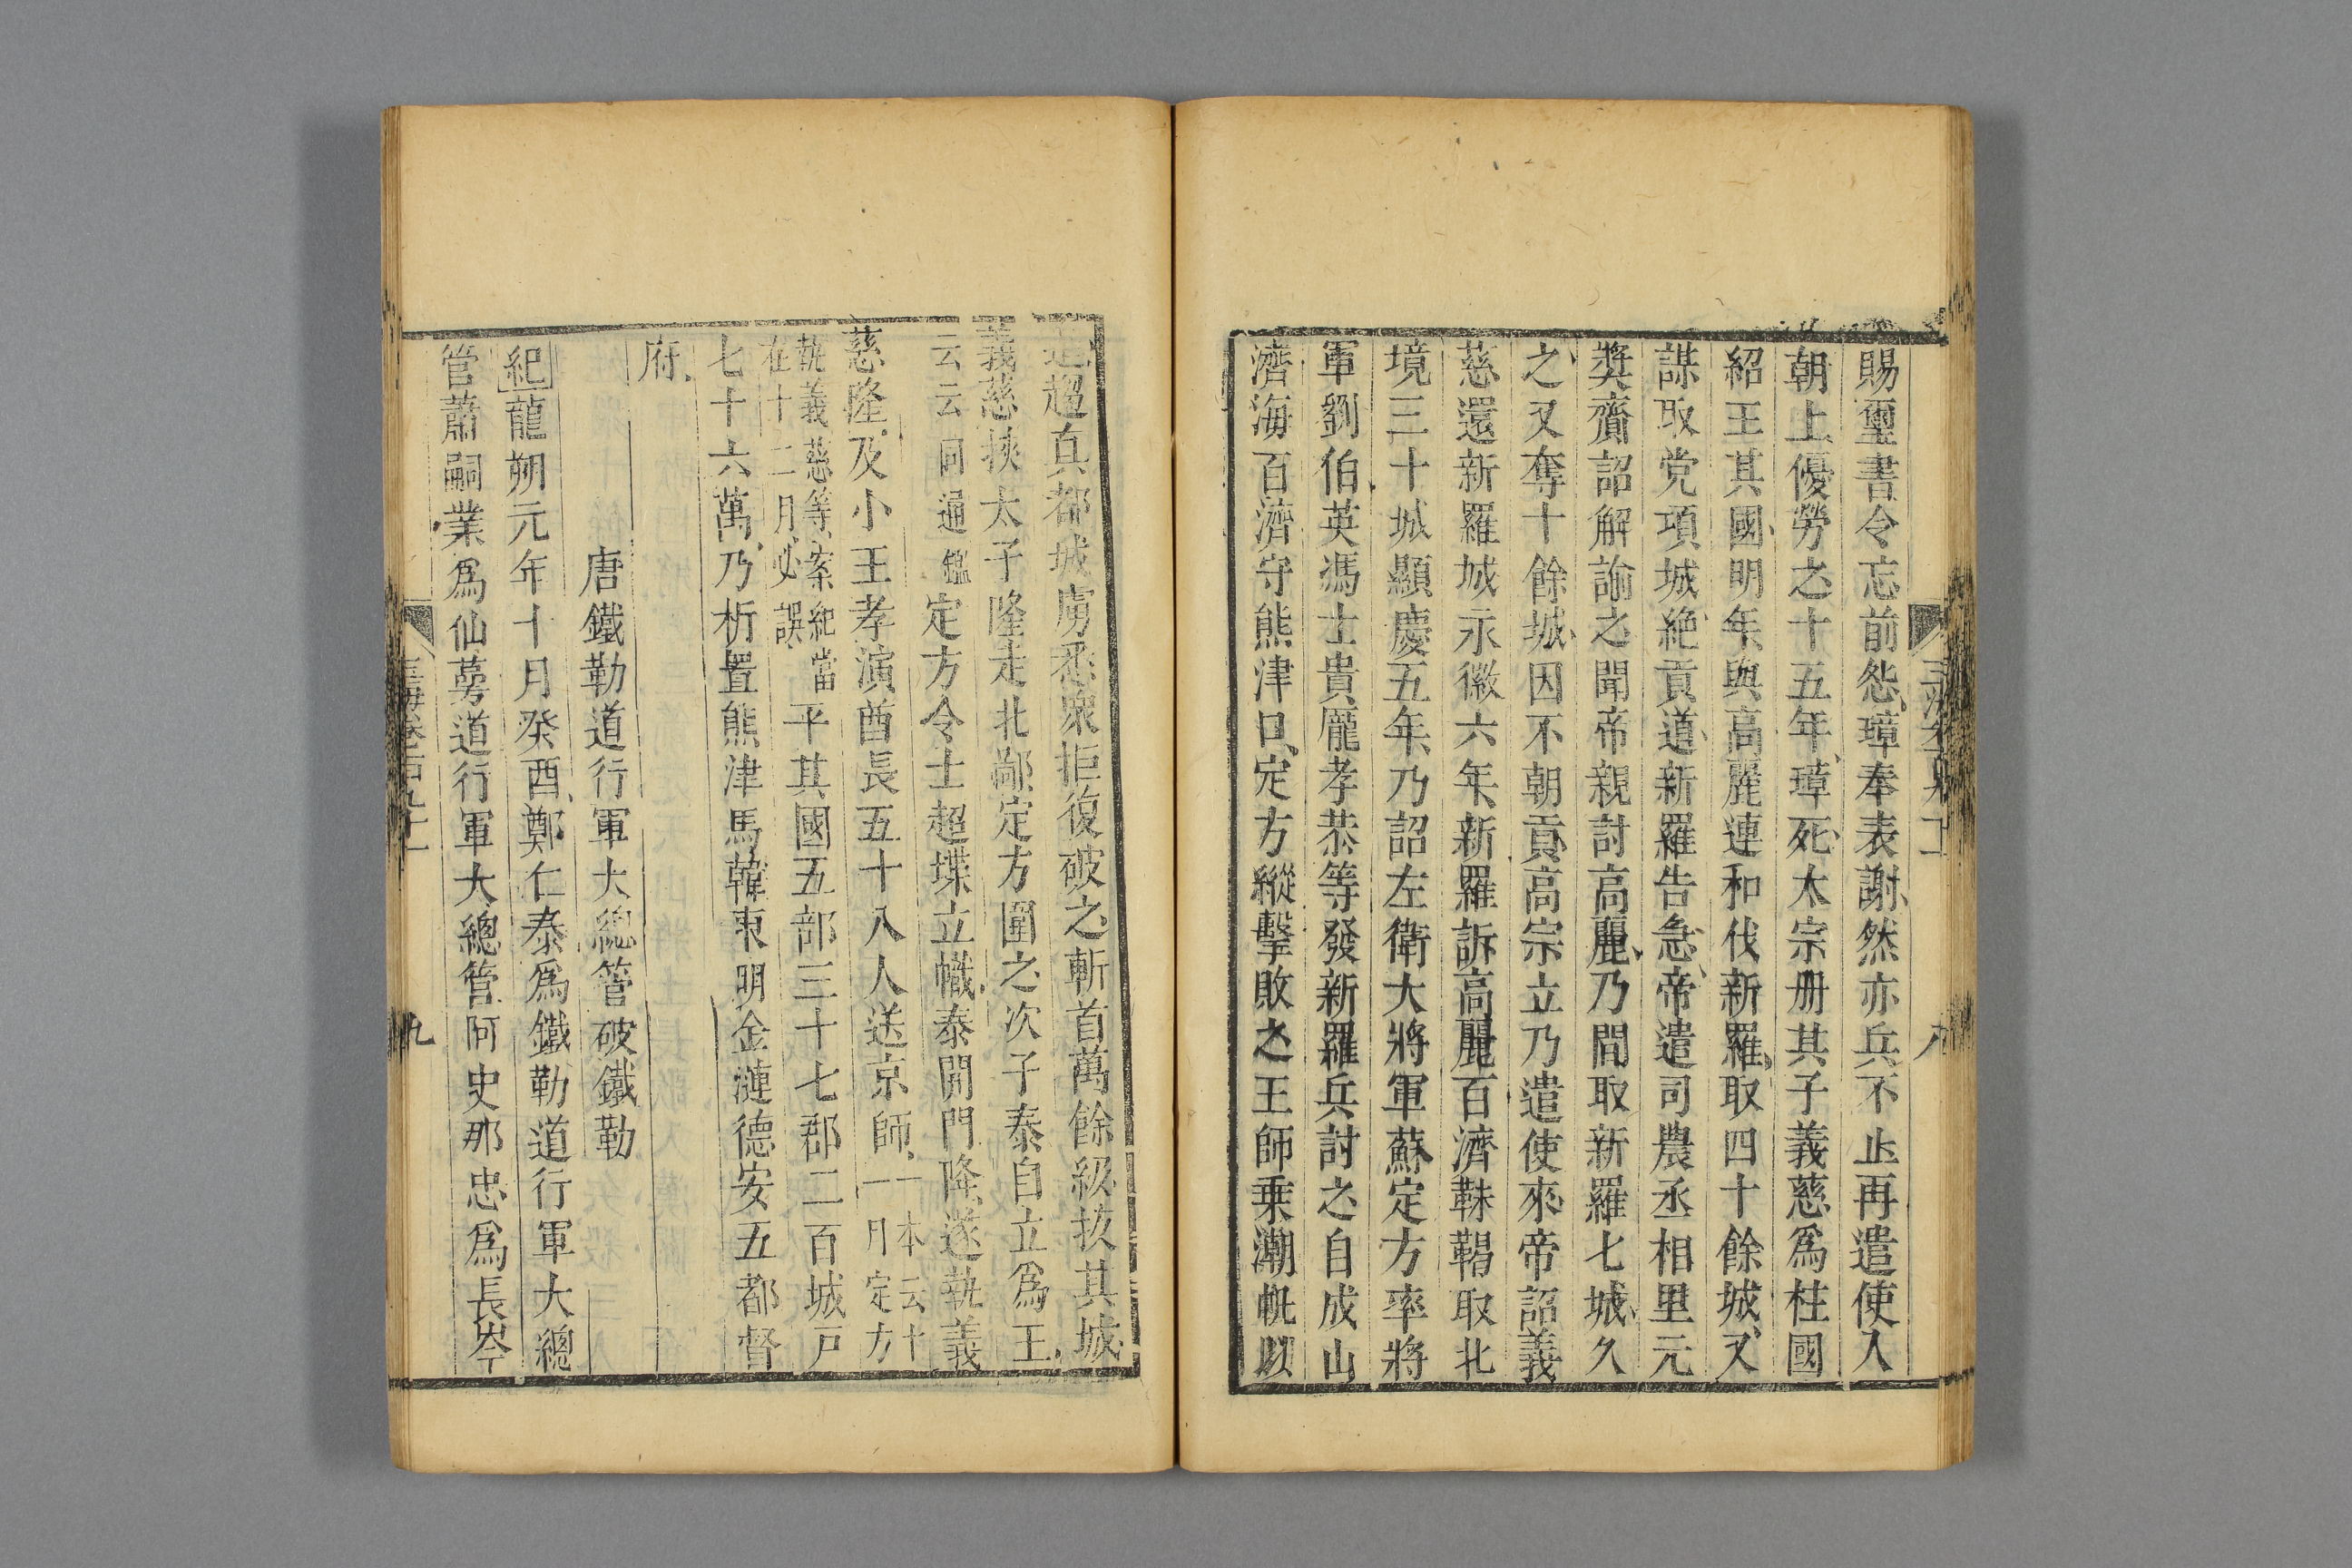 賜璽書令忘前怨璋奉表謝然亦兵不止再遣使入
朝上優勞之十五年璋死太宗册其子義慈爲柱國
紹王其國明年與高麗連和伐新羅取四十餘城又
謀取党項城絶貢道新羅告急帝遣司農丞相里元
奬齎詔解諭之聞帝親討高麗乃間取新羅七城久
之又奪十餘城因不朝貢高宗立乃遣使來帝詔義
慈還新羅城永徽六年新羅訴高麗百濟靺鞨取北
境三十城顯慶五年乃詔左衛大將軍蘇定方率將
軍劉伯英馮士貴龐孝恭等發新羅兵討之自成山
濟海百濟守熊津口定方縱擊敗之王師乗潮帆以
進趨真都城虜悉衆拒復破之斬首萬餘級拔其城
義慈挟太子隆走北鄙定方圍之次子泰自立爲王
云云同通鑑定方令士超堞立幟泰開門降遂執義
慈隆及小王孝演酋長五十八人送京師一本云十一月定方
執義慈等案紀當在十二月必誤平其國五部三十七郡二百城戸
七十六萬乃析置熊津馬韓東明金漣德安五都督
府
唐鐵勒道行軍大總管破鐵勒
紀龍朔元年十月癸酉鄭仁泰爲鐵勒道行軍大總
管蕭嗣業爲仙萼道行軍大總管阿史那忠爲長岑
九